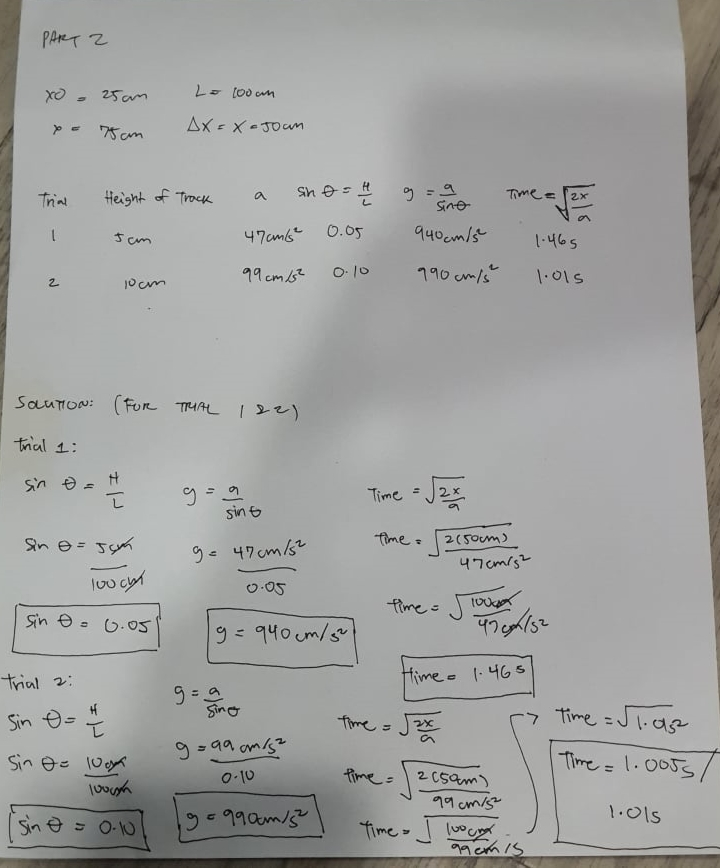 PART 2
x0 = 25cm L = 100cm
x = 75cm Δx = x = 50cm
Trial Height of Track a sin θ = H/L g = a/sinθ Time = √(2x/a)
1 5cm 47cm/s² 0.05 940cm/s² 1.46s
2 10cm 99cm/s² 0.10 990cm/s² 1.01s
SOLUTION: (FOR TRIAL 1 & 2)
Trial 1:
sin θ = H/L g = a/sinθ Time = √(2x/a)
sin θ = 5cm/100cm g = 47cm/s²/0.05 Time = √(2(50cm)/47cm/s²)
Time = √(100cm/47cm/s²)
sin θ = 0.05 g = 940cm/s²
time = 1.46s
Trial 2:
sin θ = H/L g = a/sinθ Time = √(2x/a) Time = √1.0s²
sin θ = 10cm/100cm g = 99cm/s²/0.10 Time = √(2(50cm)/99cm/s²) Time = 1.005s/
1.01s
sin θ = 0.10 g = 990cm/s² Time = √(100cm/99cm/s